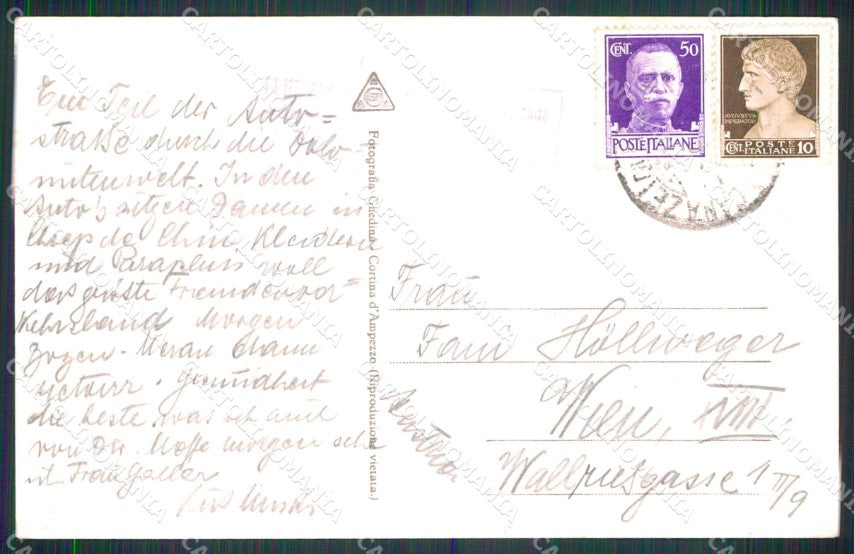 Ein Teil der Auto=
straße durch die Dolo-
mitenwelt. In den
Auto's sitzen Damen in
Crep de Chin Kleidern
und Parapluis well
das größte Fremdenver=
kehrsland Morgen
Bozen - Meran dann
retour. Gesundheit
die beste, was ich auch
von Dir hoffe morgen
Frau
Kuss
Fotografia Ghedina - Cortina d'Ampezzo (Riproduzione vietata.)
CENT. 50
POSTE ITALIANE
AVGVSTVS
IMPERATOR
POSTE
CENT. ITALIANE 10
CANAZEI
Frau
Höllweger
Wien, XVIII.
gasse 1 III/9
Austria
CARTOLINOMANIA